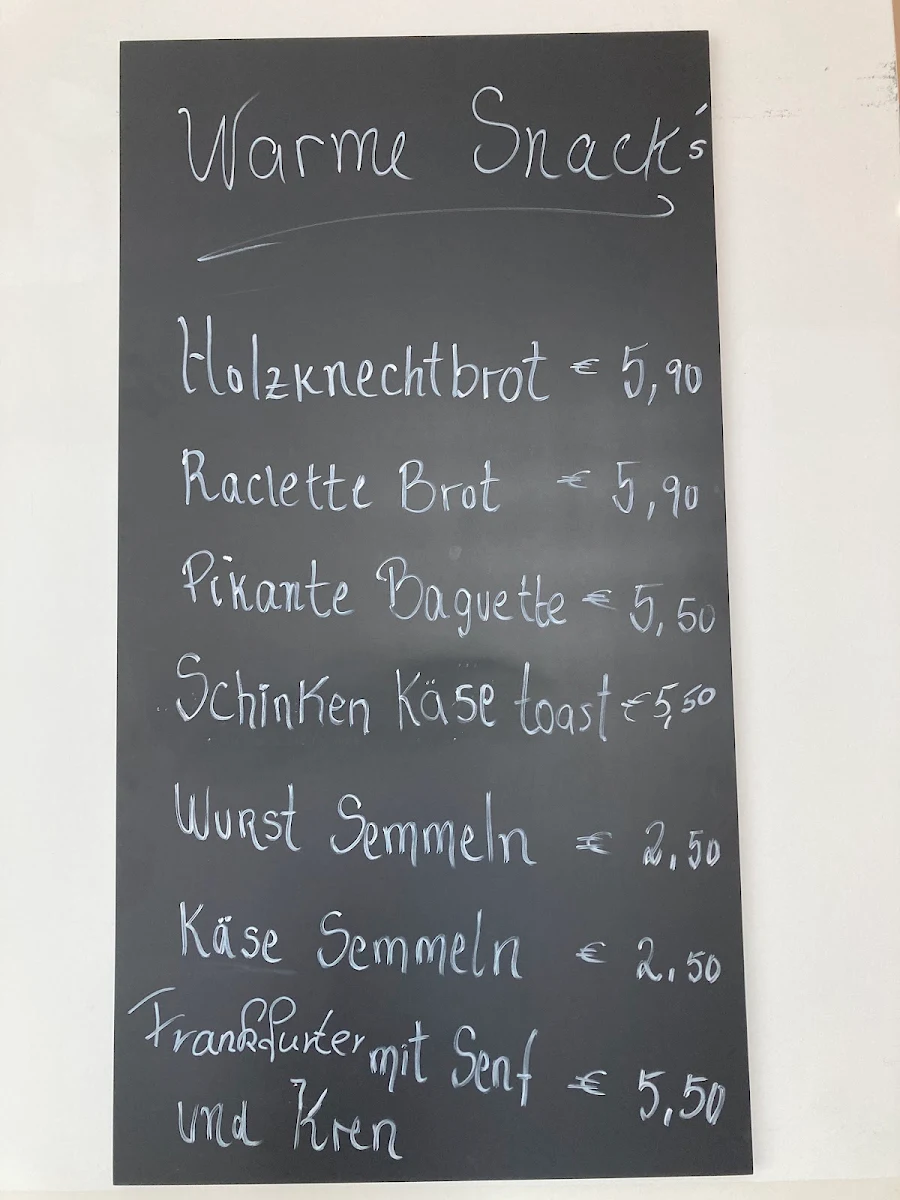 Warme Snack's
Holzknechtbrot € 5,90
Raclette Brot € 5,90
Pikante Baguette € 5,50
Schinken Käse toast € 5,50
Wurst Semmeln € 2,50
Käse Semmeln € 2,50
Frankfurter mit Senf
und Kren € 5,50